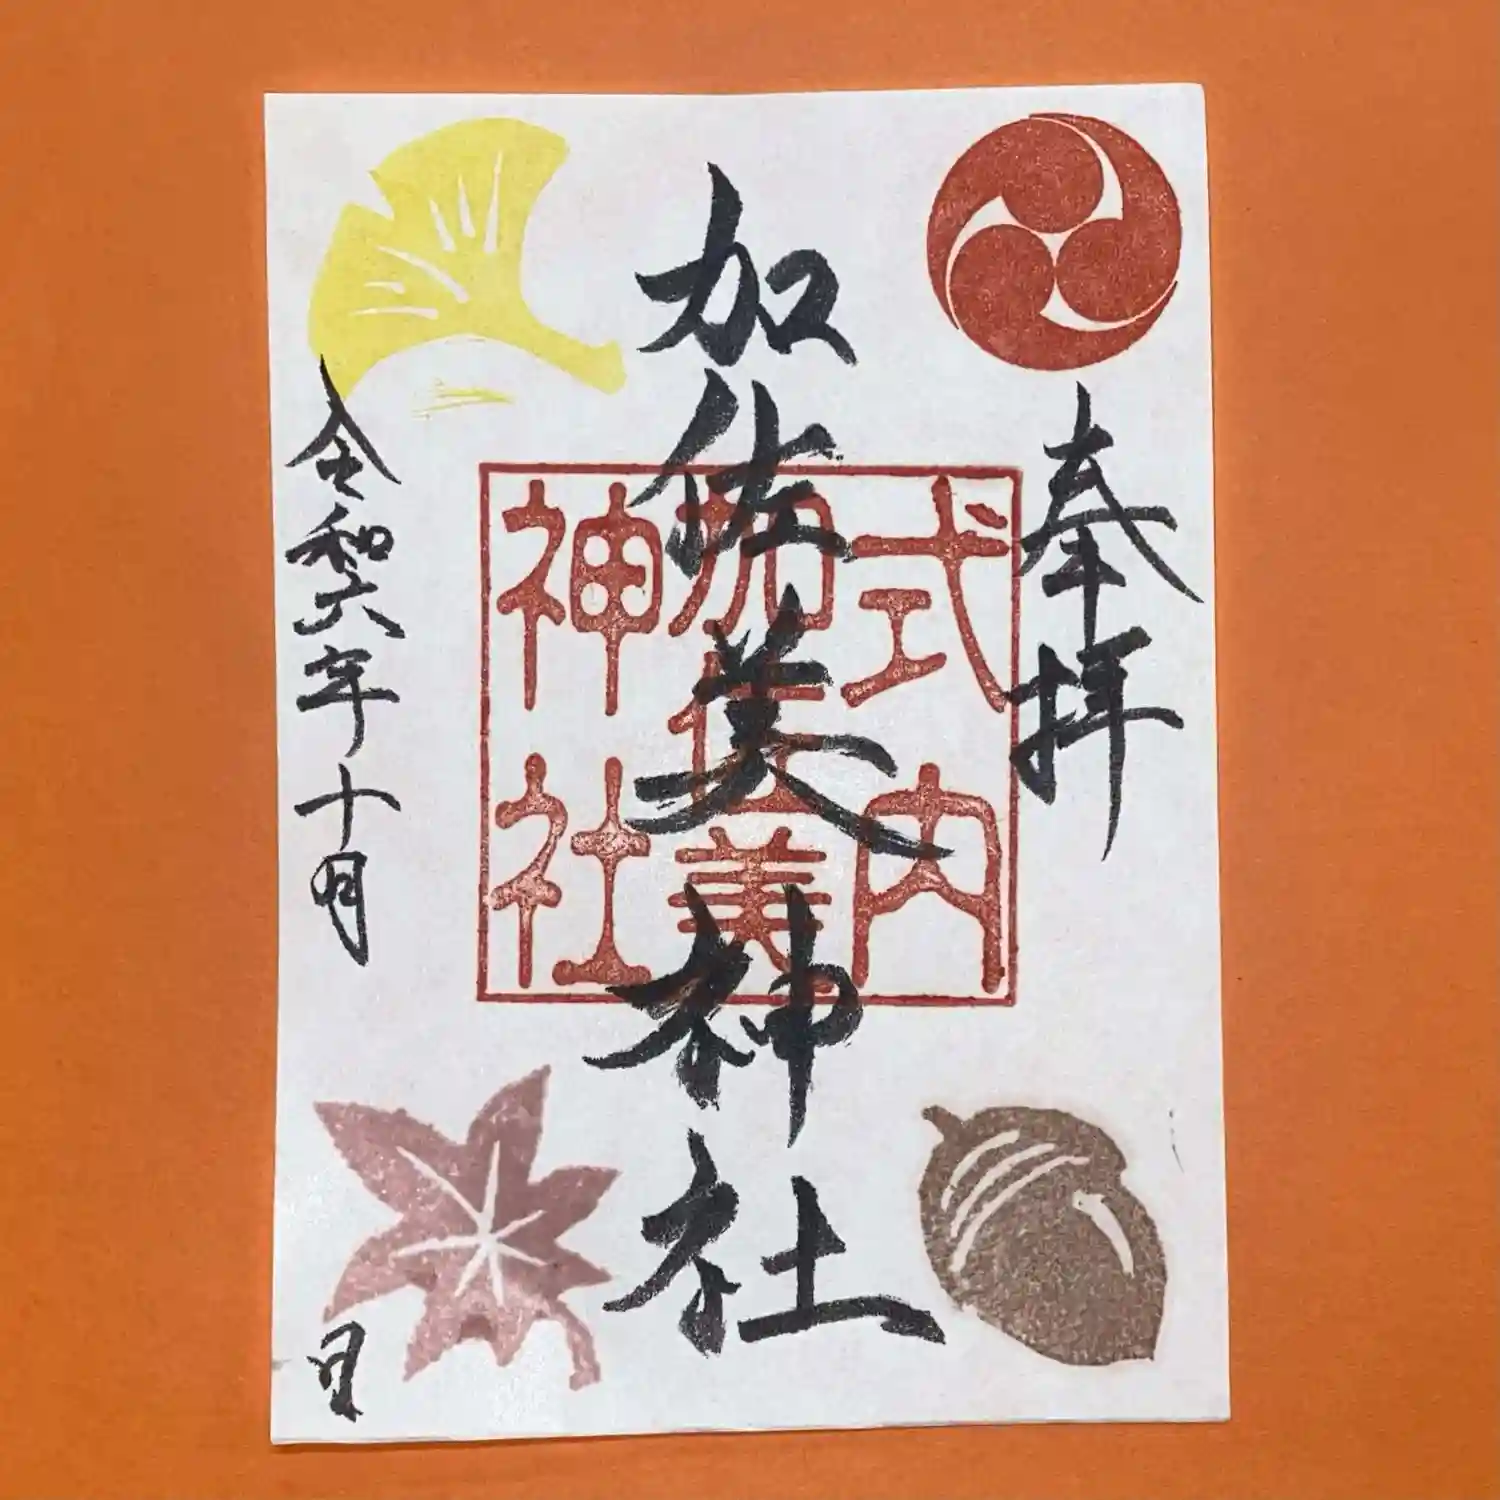 奉拝
加佐美神社
式内
加佐美
神社
令和六年十月 日